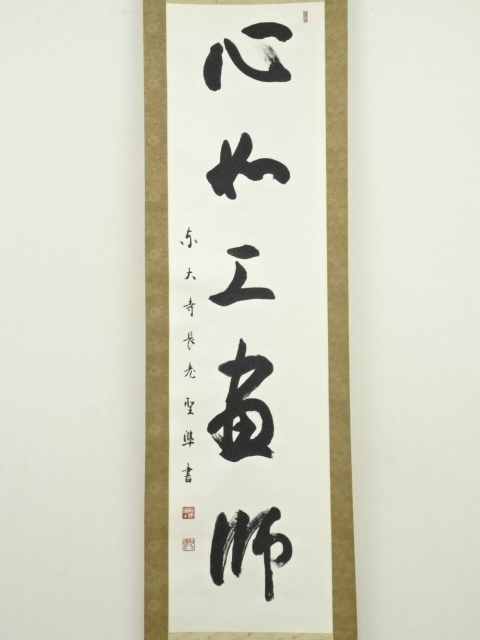 心如工畫師
東大寺長老聖準書